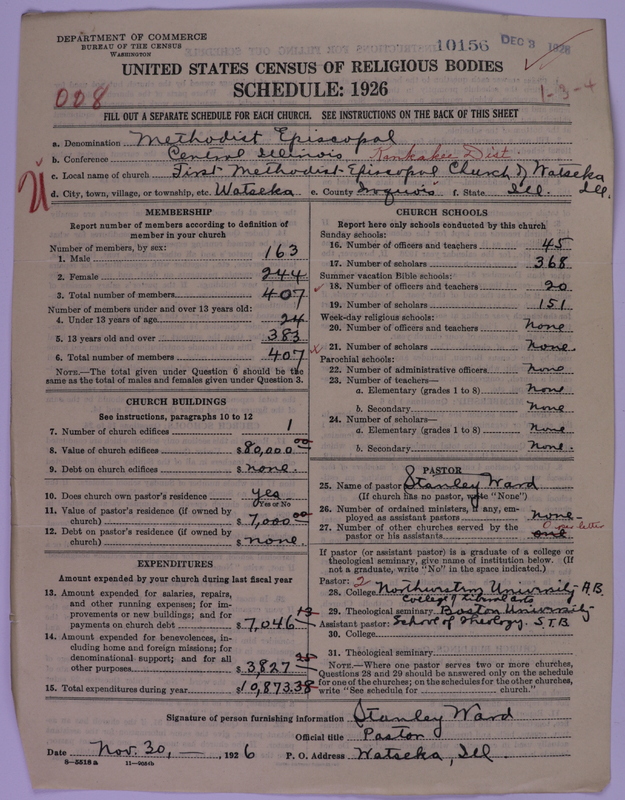 DEPARTMENT OF COMMERCE
BUREAU OF THE CENSUS
WASHINGTON
10156
DEC 3 1926
UNITED STATES CENSUS OF RELIGIOUS BODIES
SCHEDULE: 1926
008
1-3-4
FILL OUT A SEPARATE SCHEDULE FOR EACH CHURCH. SEE INSTRUCTIONS ON THE BACK OF THIS SHEET
a. Denomination Methodist Episcopal
b. Conference Central Illinois Kankakee Dist.
c. Local name of church First Methodist Episcopal Church of Watseka Ill.
d. City, town, village, or township, etc. Watseka e. County Iroquois f. State Ill.
MEMBERSHIP
Report number of members according to definition of
member in your church
Number of members, by sex:
1. Male 163
2. Female 244
3. Total number of members 407
Number of members under and over 13 years old:
4. Under 13 years of age 24
5. 13 years old and over 383
6. Total number of members 407
NOTE.—The total given under Question 6 should be the
same as the total of males and females given under Question 3.
CHURCH BUILDINGS
See instructions, paragraphs 10 to 12
7. Number of church edifices 1
8. Value of church edifices $80,000.00
9. Debt on church edifices $none.
10. Does church own pastor's residence yes
Yes or No
11. Value of pastor's residence (if owned by
church) $7,000.00
12. Debt on pastor's residence (if owned by
church) $none.
EXPENDITURES
Amount expended by your church during last fiscal year
13. Amount expended for salaries, repairs,
and other running expenses; for im-
provements or new buildings; and for
payments on church debt $7,046
14. Amount expended for benevolences, in-
cluding home and foreign missions; for
denominational support; and for all
other purposes $3,827
15. Total expenditures during year $10,873.38
CHURCH SCHOOLS
Report here only schools conducted by this church
Sunday schools:
16. Number of officers and teachers 45
17. Number of scholars 368
Summer vacation Bible schools:
18. Number of officers and teachers 20
19. Number of scholars 151
Week-day religious schools:
20. Number of officers and teachers none
21. Number of scholars none.
Parochial schools:
22. Number of administrative officers none
23. Number of teachers—
a. Elementary (grades 1 to 8) none
b. Secondary none
24. Number of scholars—
a. Elementary (grades 1 to 8) none
b. Secondary none.
PASTOR
25. Name of pastor Stanley Ward
(If church has no pastor, write "None")
26. Number of ordained ministers, if any, em-
ployed as assistant pastors none
27. Number of other churches served by the 0 per letter
pastor or his assistants one
If pastor (or assistant pastor) is a graduate of a college or
theological seminary, give name of institution below. (If
not a graduate, write "No" in the space indicated.)
Pastor: 2
28. College Northwestern University A.B.
College of Liberal Arts
29. Theological seminary Boston University
Assistant pastor: School of Theology. S.T.B.
30. College
31. Theological seminary
NOTE.—Where one pastor serves two or more churches,
Questions 28 and 29 should be answered only on the schedule
for one of the churches; on the schedules for the other churches,
write "See schedule for church."
Signature of person furnishing information Stanley Ward
Official title Pastor
Date Nov. 30, — , 1926 P. O. Address Watseka, Ill.
8—5518a 11—9084b